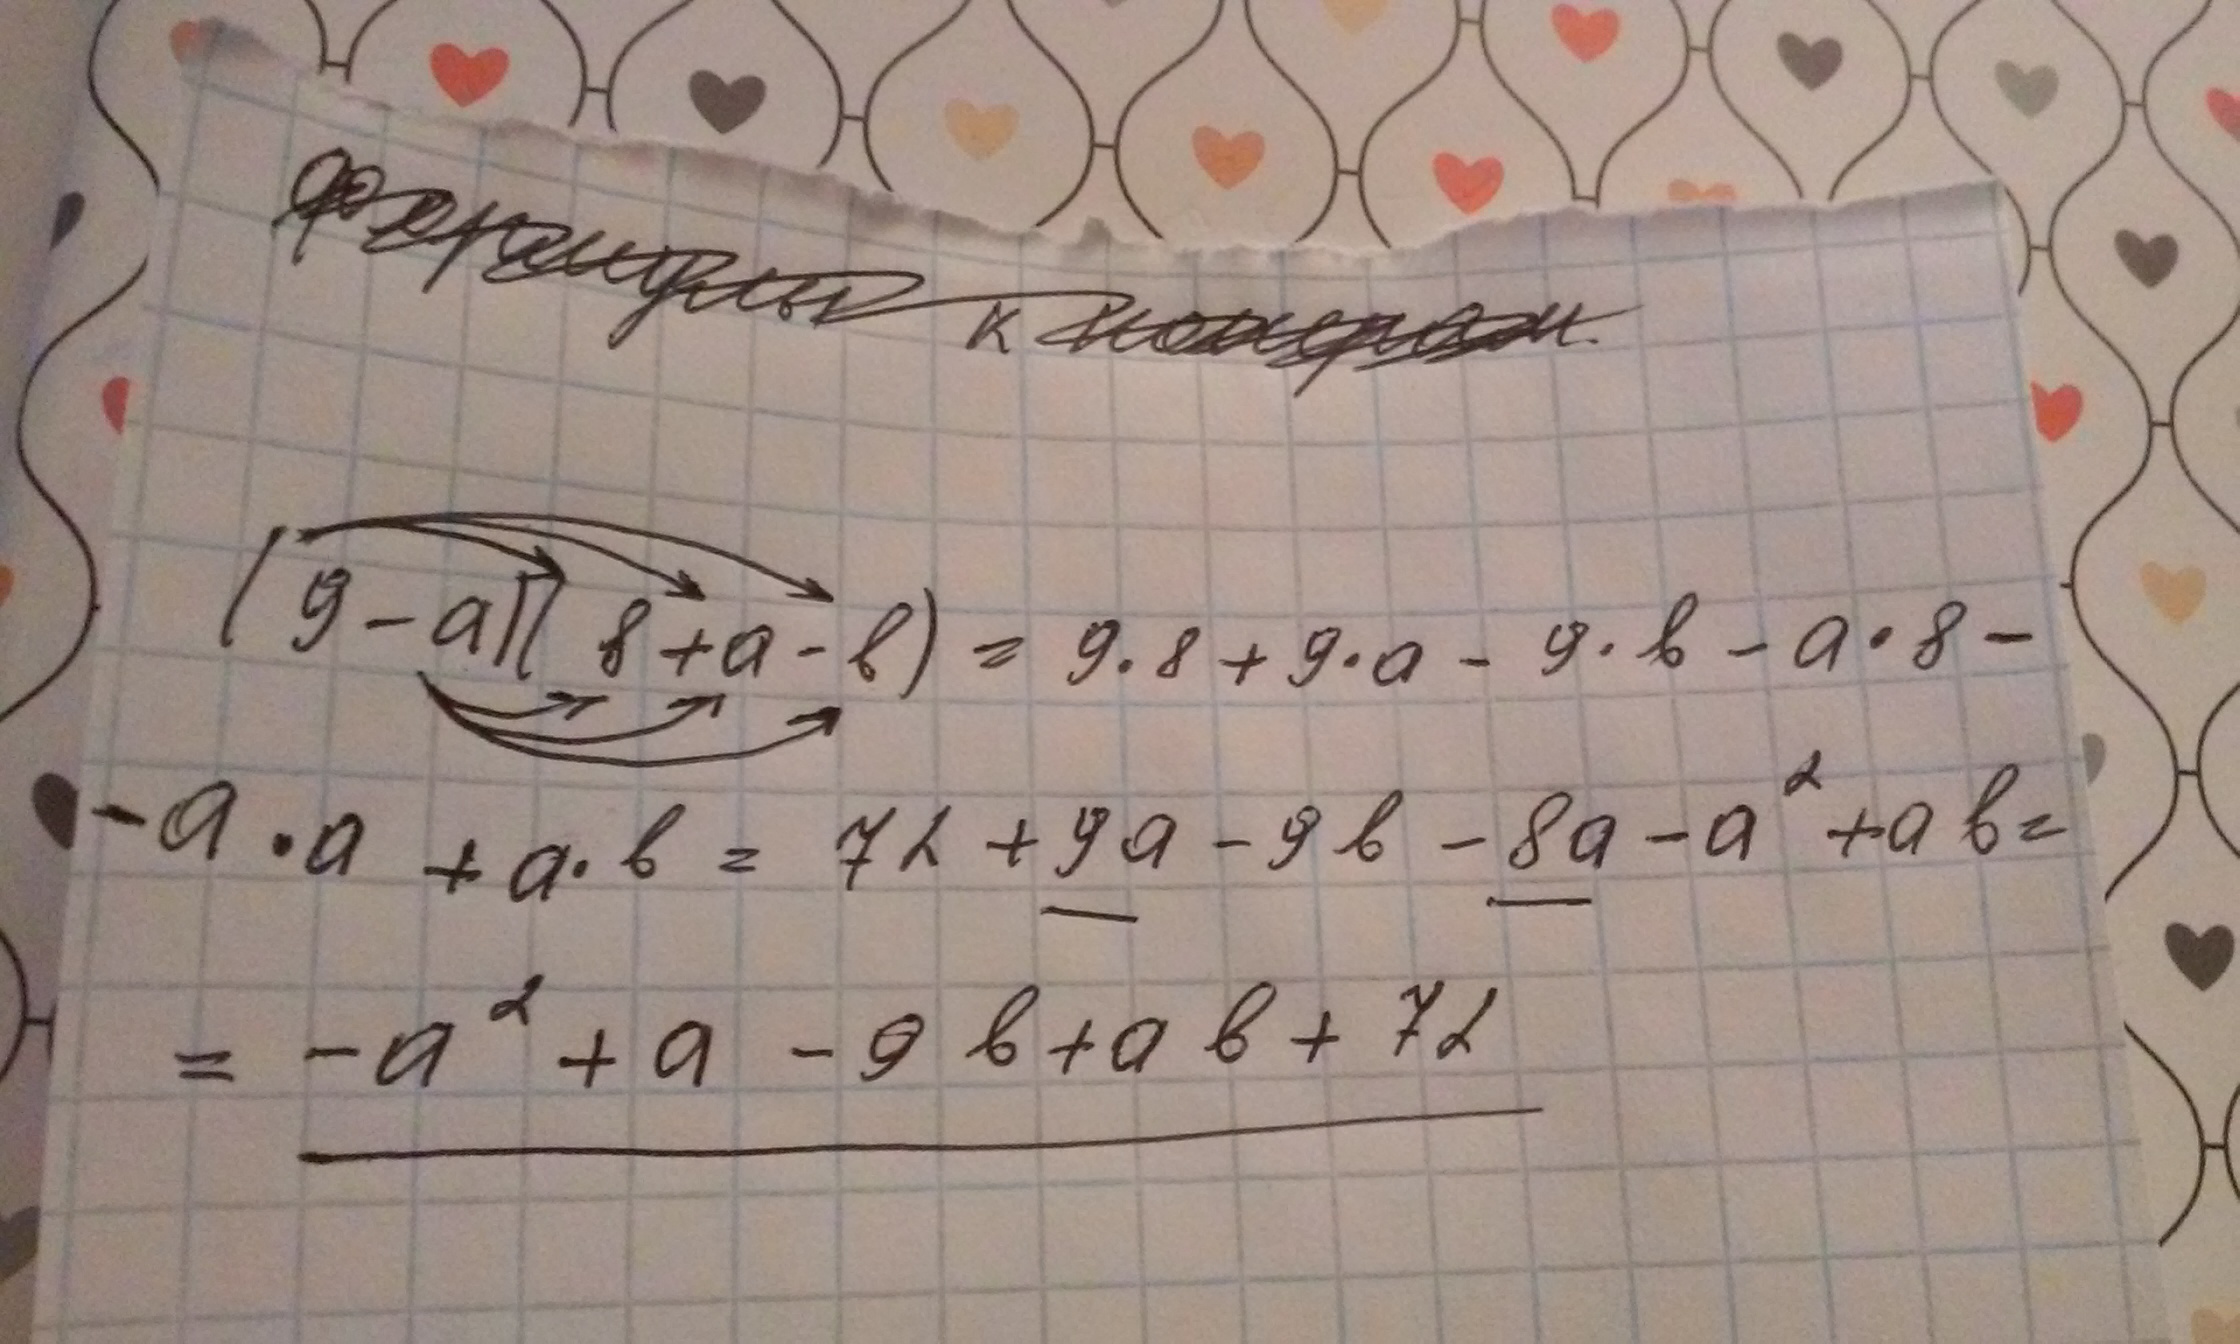 формулы к
(9-a)(8+a-b) = 9·8+9·a - 9·b - a·8 -
-a·a + a·b = 72 +9a - 9b - 8a - a² + ab =
= -a² + a - 9b + ab + 72